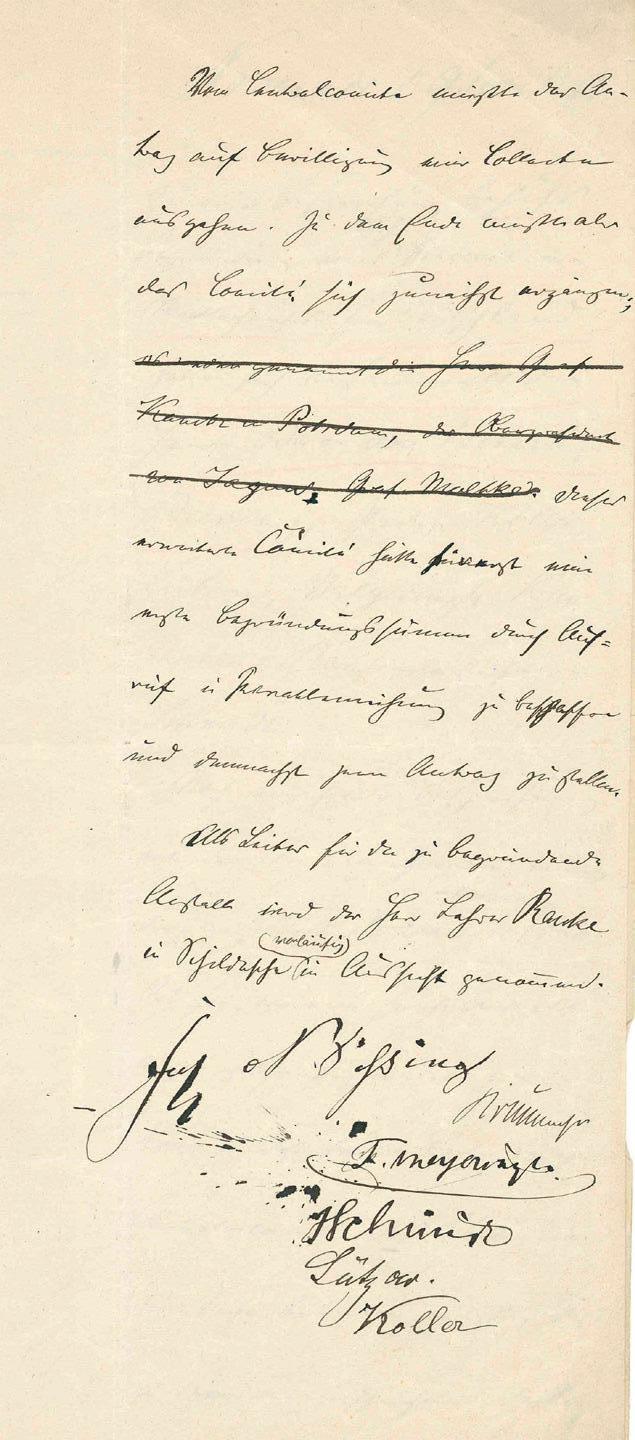 Vom Centralcomite müßte der An-
trag auf Bewilligung einer Collecte
ausgehen. Zu dem Ende müßte aber
das Comité sich zunächst ergänzen;
genannt die Herrn Graf
Potsdam, der Oberpräsident
von Jagow, Graf Moltke. Dieses
erweiterte Comité hätte zuerst eine
erste Begründungssumme durch Auf-
ruf u zu beschaffen
und demnächst jenen Antrag zu stellen.
Als Leiter für die zu begründende
Anstalt wird der Herr Lehrer
vorläufig
in Schildesche in Aussicht genommen.
Bössing
Krummacher
F. Meyer
Schmidt
Lützow.
Koller